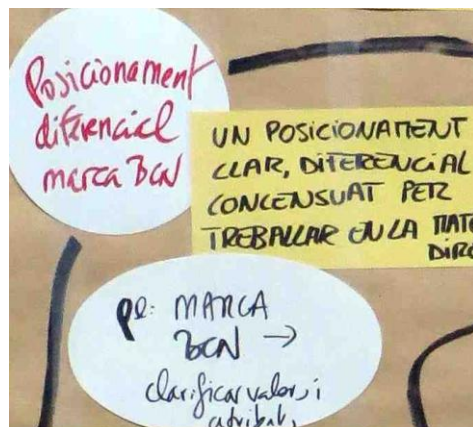 Posicionament
diferencial
marca BCN
UN POSICIONAMENT
CLAR, DIFERENCIAL
CONCENSUAT PER
TREBALLAR EN LA
MARCA
BCN →
clarificar valors i
atributs